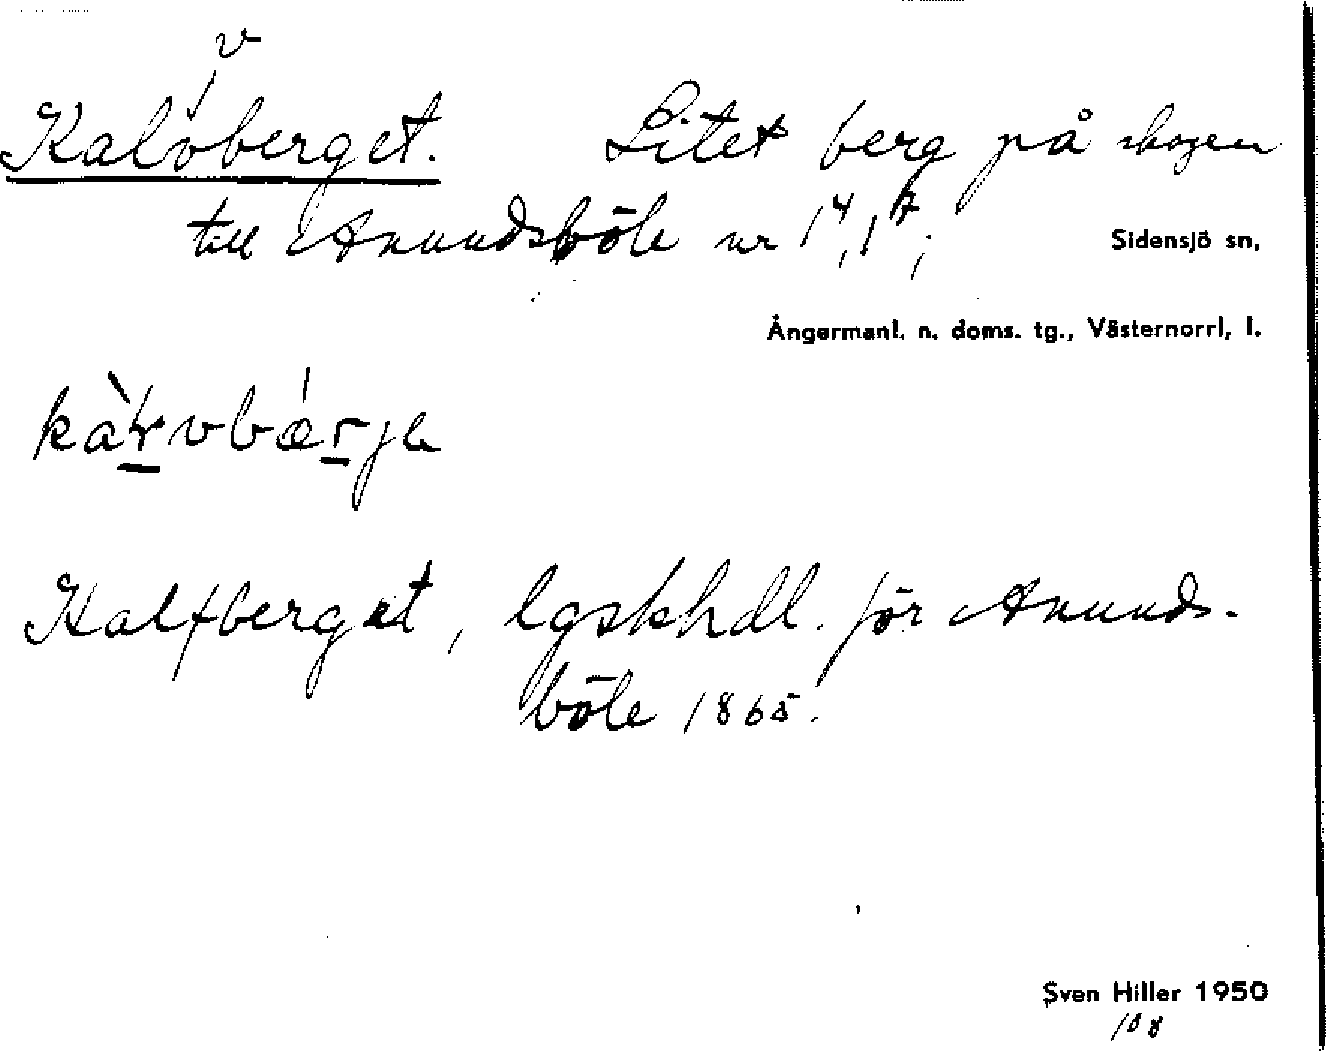 v
Kalvberget. Litet berg på skogen
till Anundsböle nr 1⁴, 1⁷;
Sidensjö sn,
Ångermanl. n. doms. tg., Västernorrl, l.
Kalfberget, lgskhdl. för Anunds-
böle 1865.
Sven Hiller 1950
108